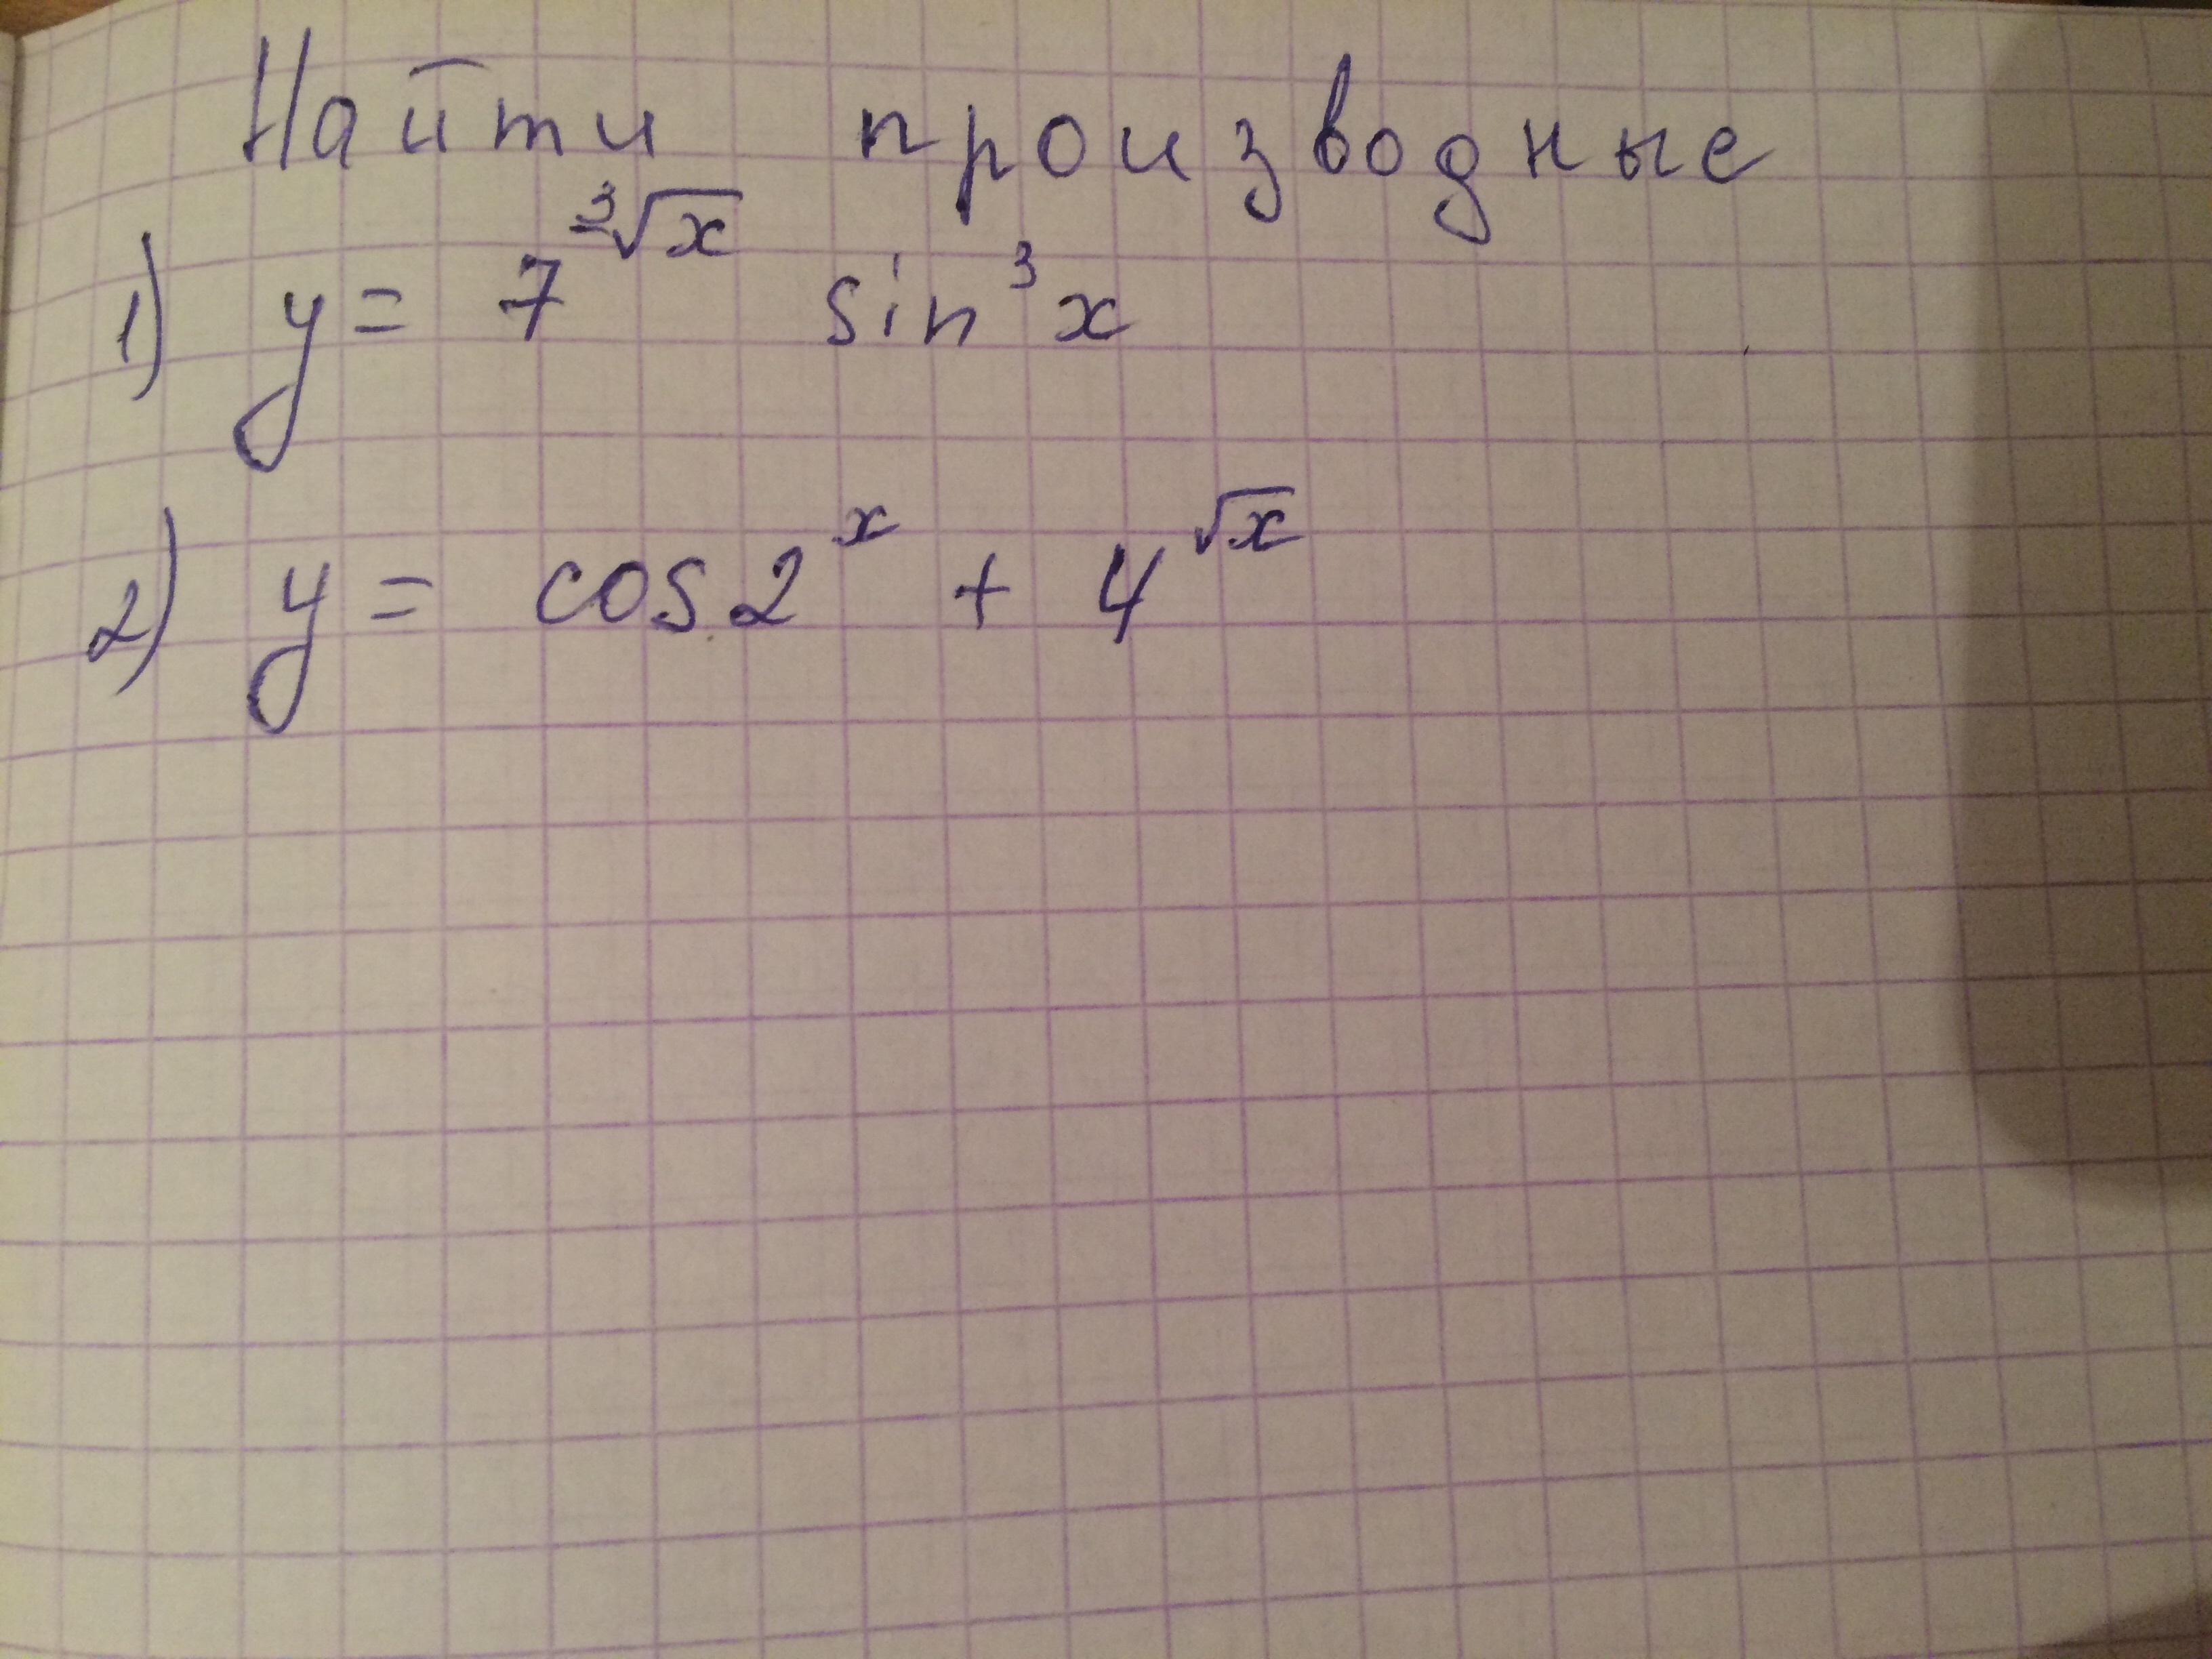 Найти производные
1) y = 7^∛x sin³x
2) y = cos 2^x + 4^√x